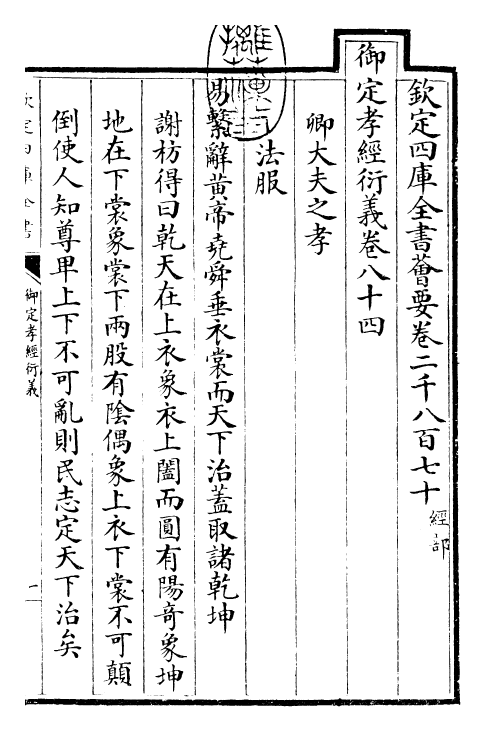 欽定四庫全書薈要卷二千八百七十 經部
御定孝經衍義卷八十四
卿大夫之孝
法服
易繫辭黄帝堯舜垂衣裳而天下治蓋取諸乾坤
謝枋得曰乾天在上衣象衣上闔而圓有陽竒象坤
地在下裳象裳下兩股有隂偶象上衣下裳不可顛
倒使人知尊卑上下不可亂則民志定天下治矣
欽定四庫全書
御定孝經衍義
一